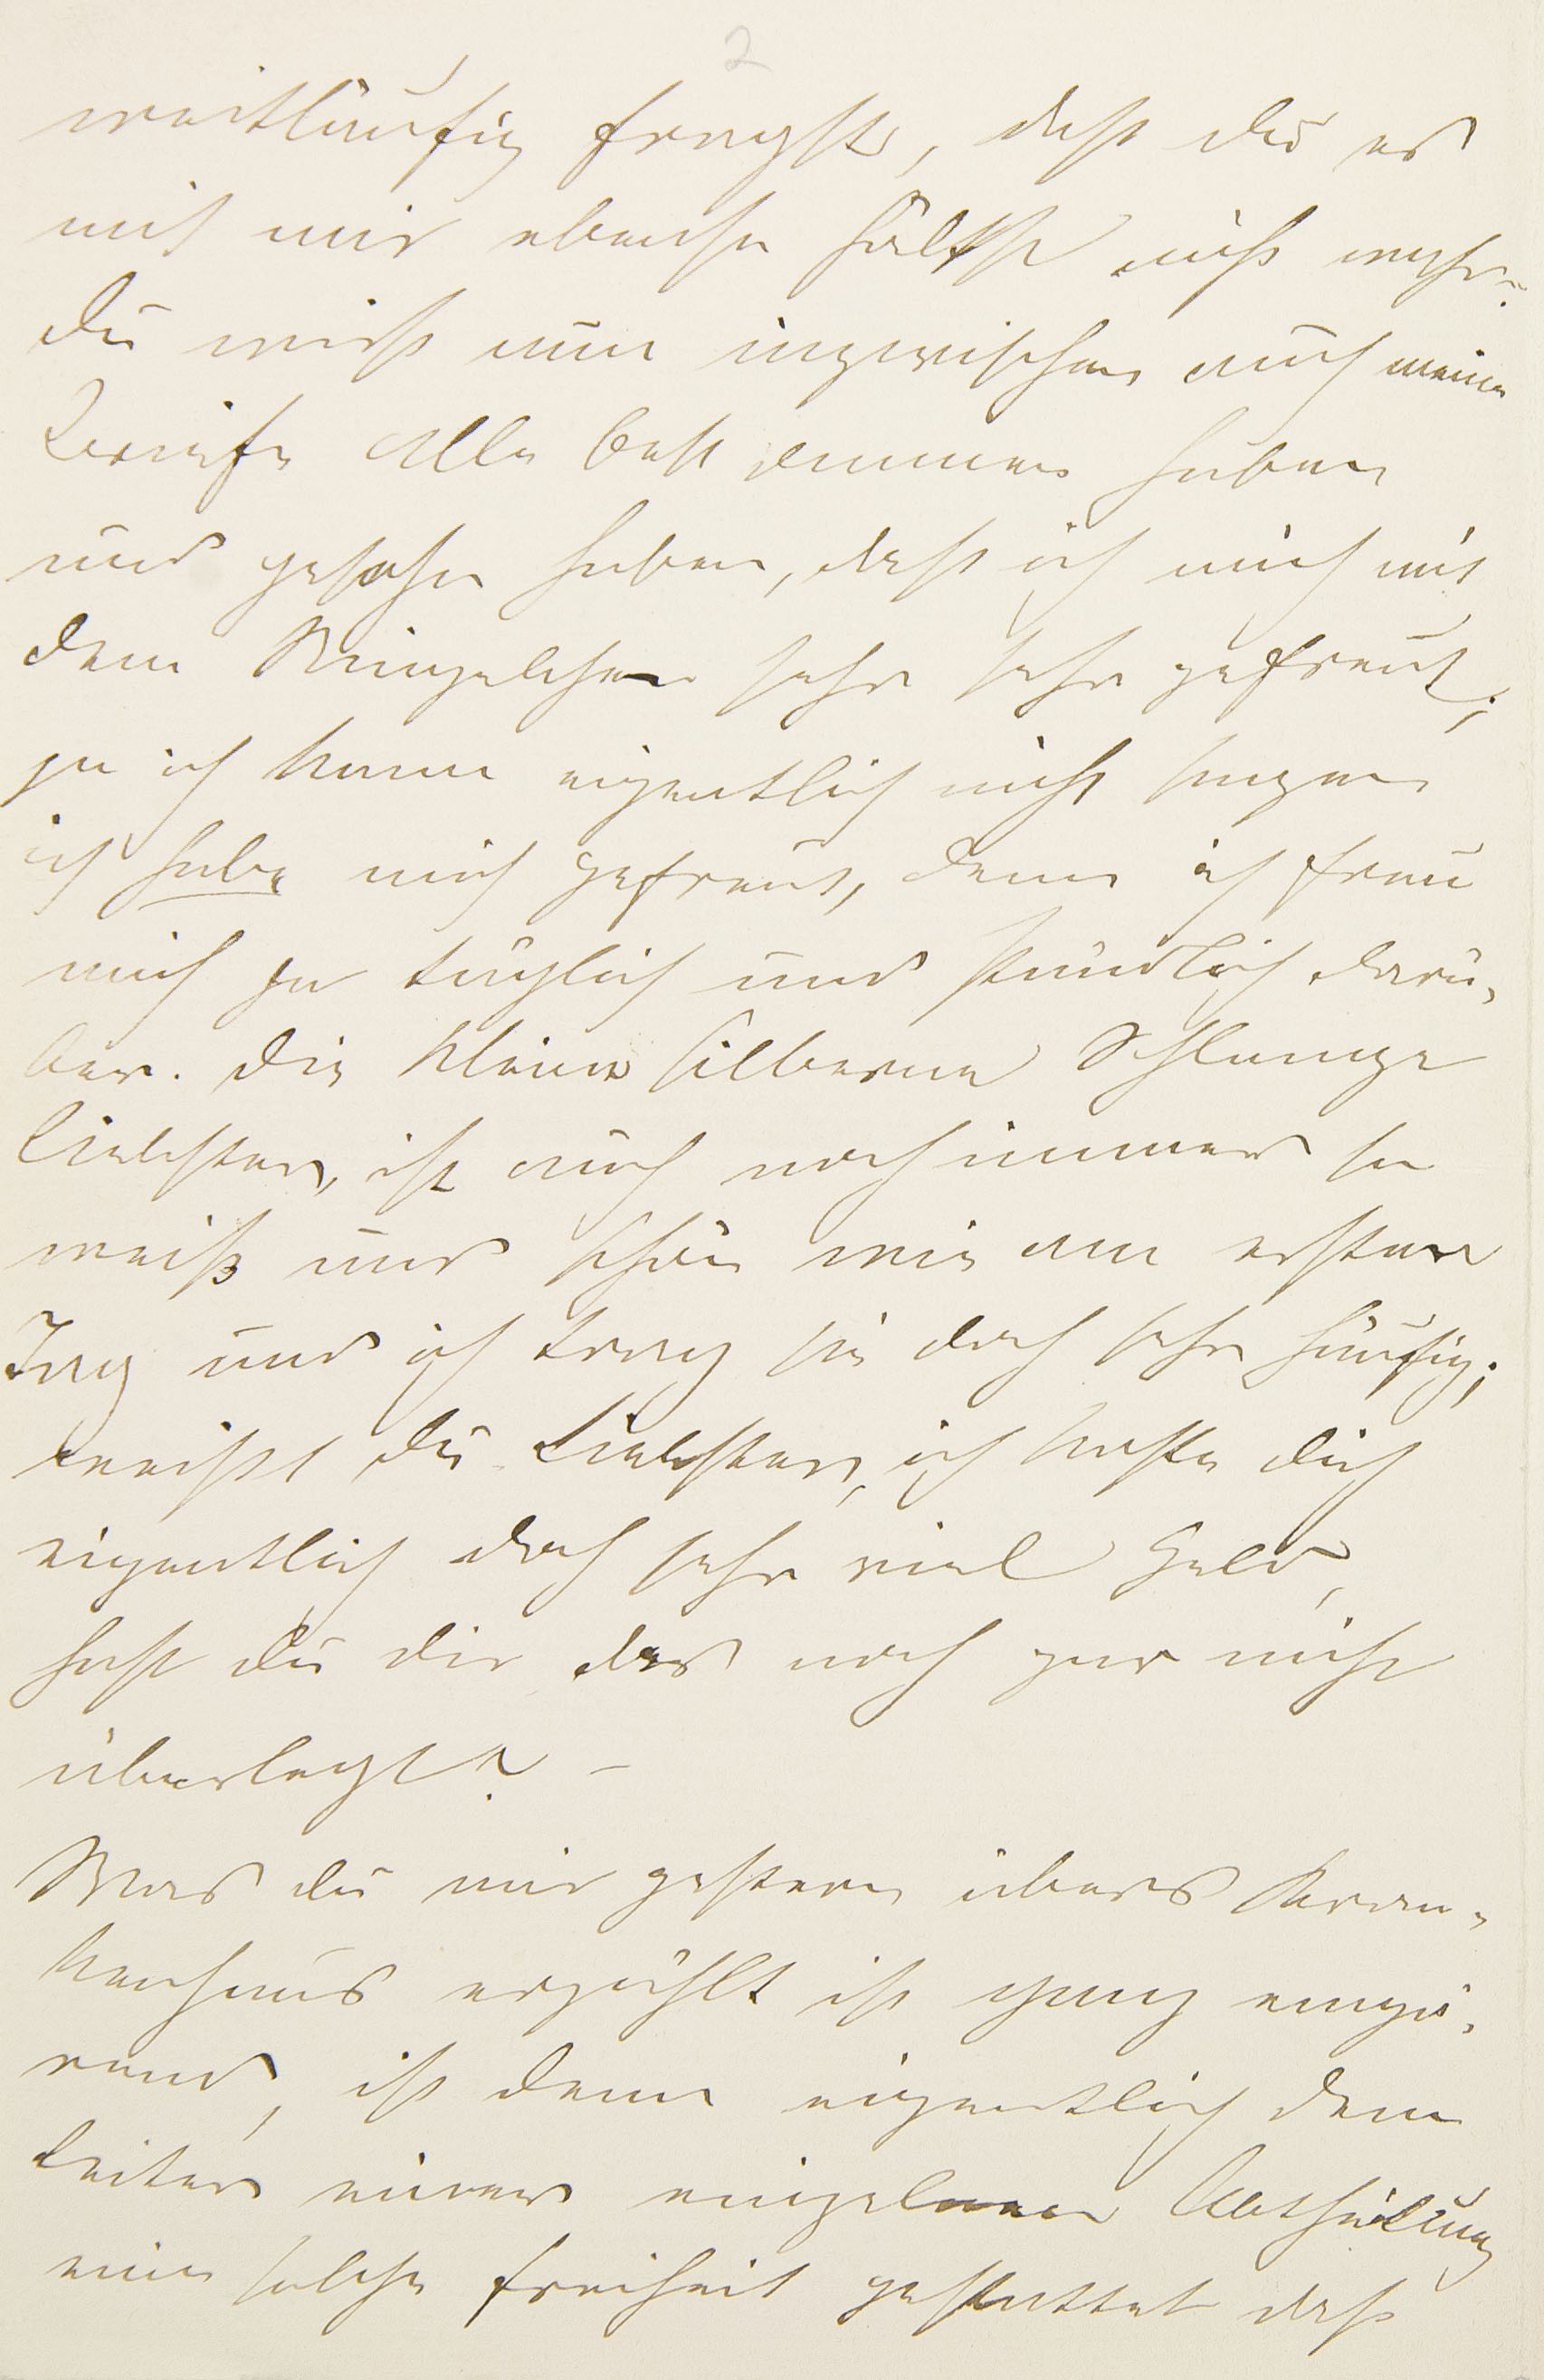 2
weitläufig fragst, daß du es
mit mir ebenso hältst nicht wahr?
du wirst nun inzwischen auch meine
Briefe alle bekommen haben
und gesehen haben, daß ich mich mit
dem Ringelchen sehr sehr gefreut;
ja ich kann eigentlich nicht sagen
ich habe mich gefreut, denn ich freu
mich ja täglich und stündlich darü-
ber. die kleine silberne Schlange
Liebster, ist auch noch immer so
weiß und schön wie am ersten
Tag und ich trag sie doch sehr häufig;
weißt du Liebster, ich koste dich
eigentlich doch sehr viel Geld,
hast du dir das noch gar nicht
überlegt? –
Was du mir gestern übers Kran-
kenhaus erzählt ist ganz empö-
rend, ist denn eigentlich dem
Leiter einer einzelnen Abtheilung
eine solche Freiheit gestattet daß